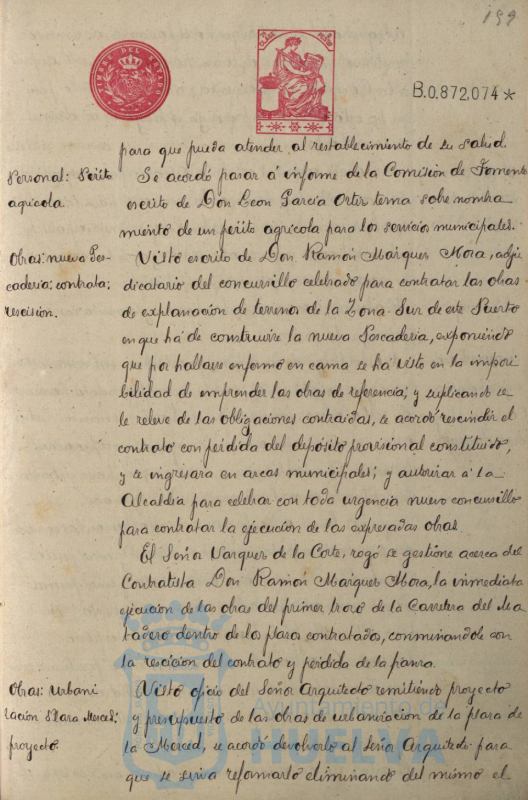 199
TIMBRE DEL ESTADO
B.0.872.074*
para que pueda atender al restablecimiento de su salud.
Personal: Perito
agricola.
Se acordó pasar á informe de la Comisión de Fomento
escrito de Don Leon García Ortiz sobre nombra
miento de un perito agrícola para los servicios municipales.
Obras: nueva Pes-
caderia: contrata:
rescision.
Visto escrito de Don Ramón Marquez Mora, adju
dicatario del concursillo celebrado para contratar las obras
de explanación de terrenos de la Zona-Sur de este Puerto
en que há de construirse la nueva Pescaderia, exponiendo
que por hallarse enfermo en cama se há visto en la imposi
bilidad de emprender las obras de referencia; y suplicando se
le releve de las obligaciones contraidas, se acordó rescindir el
contrato con pérdida del depósito provisional constituido,
y se ingresará en arcas municipales; y autorizar á la
Alcaldía para celebrar con toda urgencia nuevo concursillo
para contratar la ejecución de las expresadas obras.
El Señor Vazquez de la Corte, rogó se gestione acerca del
Contratista Don Ramón Marquez Mora, la inmediata
ejecución de las obras del primer trozo de la Carretera del Ma
tadero dentro de los plazos contratados, conminandole con
la rescición del contrato y pérdida de la fianza.
Obras: Urbani
zación Plaza Merced:
proyecto.
Visto oficio del Señor Arquitecto remitiendo proyecto
y presupuesto de las obras de urbanización de la plaza de
la Merced, se acordó devolverlo al Señor Arquitecto para
que se sirva reformarlo eliminando del mismo el
Ayuntamiento de
HUELVA